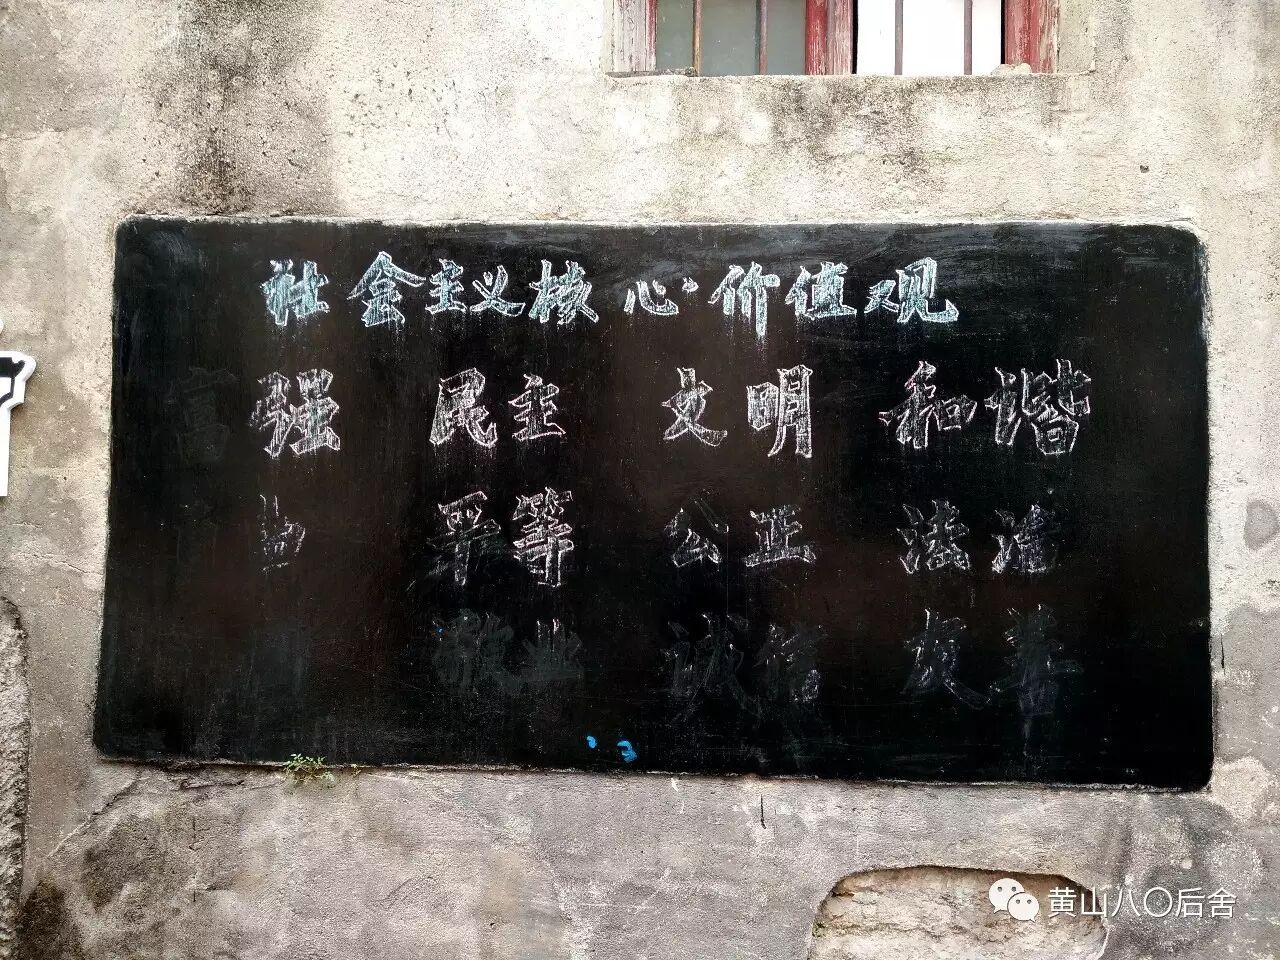 社会主义核心价值观
富强 民主 文明 和谐
由 平等 公正 法治
敬业 诚信 友善
黄山八〇后舍